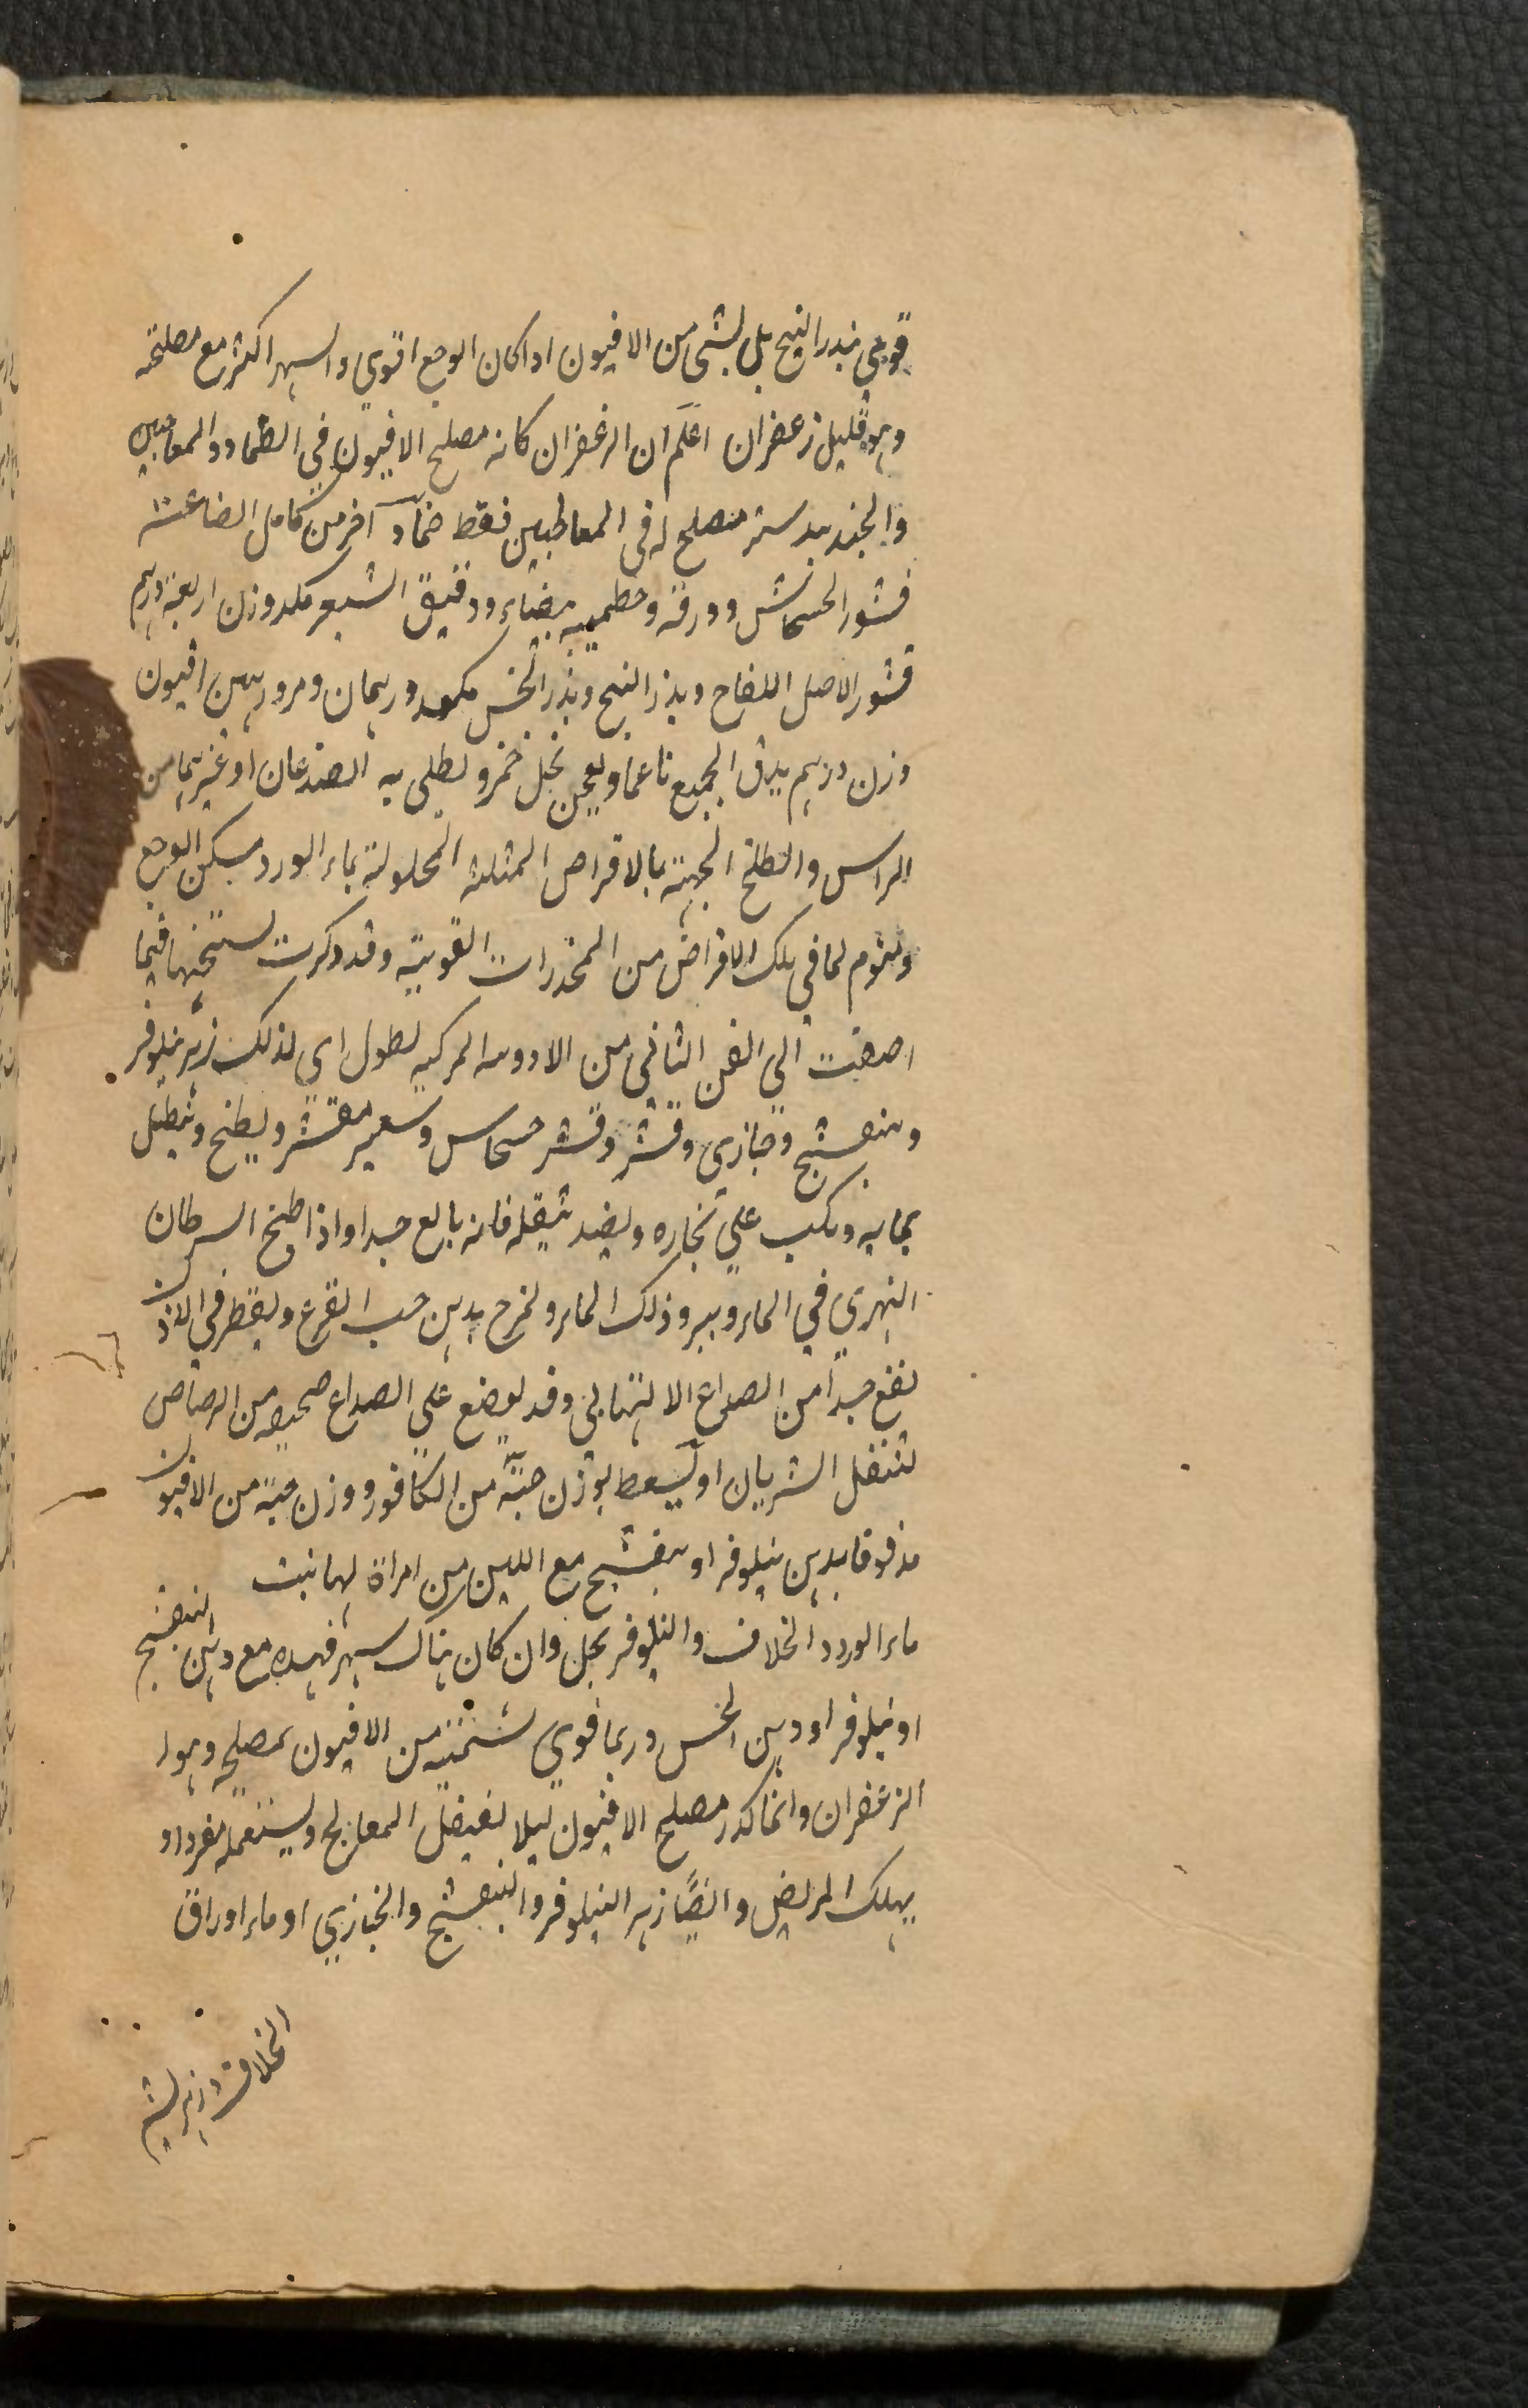 قوي ببذر البنج بل بشئ من الافيون اذا كان الوجع اقوي والسهر اكثر مع مصلحه
وهو قليل زعفران اعلم ان الزعفران كانه مصلح الافيون في الضماد والمعاجين
والجندبيدستر مصلح له في المعاجين فقط ضماد آخر من كامل الصناعته
قشور الخشخاش وورقه وخطميه بيضاء ودقيق الشعير مكد وزن اربعة درهم
قشور الاصل اللفاح وبذر البنج وبذر الخس مكد درهمان ومر درهمين افيون
وزن درهم يدق الجميع ناعما ويعجن بخل خمر ويطلى به الصدغان او غيرهما من
الراس والطلخ الجبهة بالاقراص المثلثه المحلولة بماء الورد مسكن الوجع
ومنوم لما في تلك الاقراض من المخدرات القويته وقد ذكرت نسختها فيما
اضفت الي الفن الثاني من الادويه المركبه نطول اي لذلك زهر نيلوفر
وبنفشج وخبازي وقشر وقشر خشخاش وشعير مقشر ويطبخ وينطل
بمايه ويكب علي بخاره ويضمد بثقله فانه بالغ جدا واذا طبخ السرطان
النهري في الماء ويبرد ذلك الماء ويمزج بدهن حب القرع ويقطر في الاذن
نفع جداً من الصداع الالتهابى وقد يوضع على الصداع صحيفه من الرصاص
لتثقل الشريان او يسعط بوزن حبّة من الكافور ووزن حبة من الافيون
مدقوقا بدهن نيلوفر او بنفشج مع اللبن من امراة لها بنت
ماء الورد الخلاف والنيلوفر بخل وان كان هناك سهر فهذه مع دهن البنفشج
او نيلوفر او دهن الخس وربما قوي بشئ من الافيون بمصلحه وهو ا
الزعفران وانما كدر مصلح الافيون ليلا يغفل المعالج ويستعمله مفردا و
يهلك المريض وايضًا زهر النيلوفر والبنفشج والخبازي او ماء اوراق
الخلاف وزهر